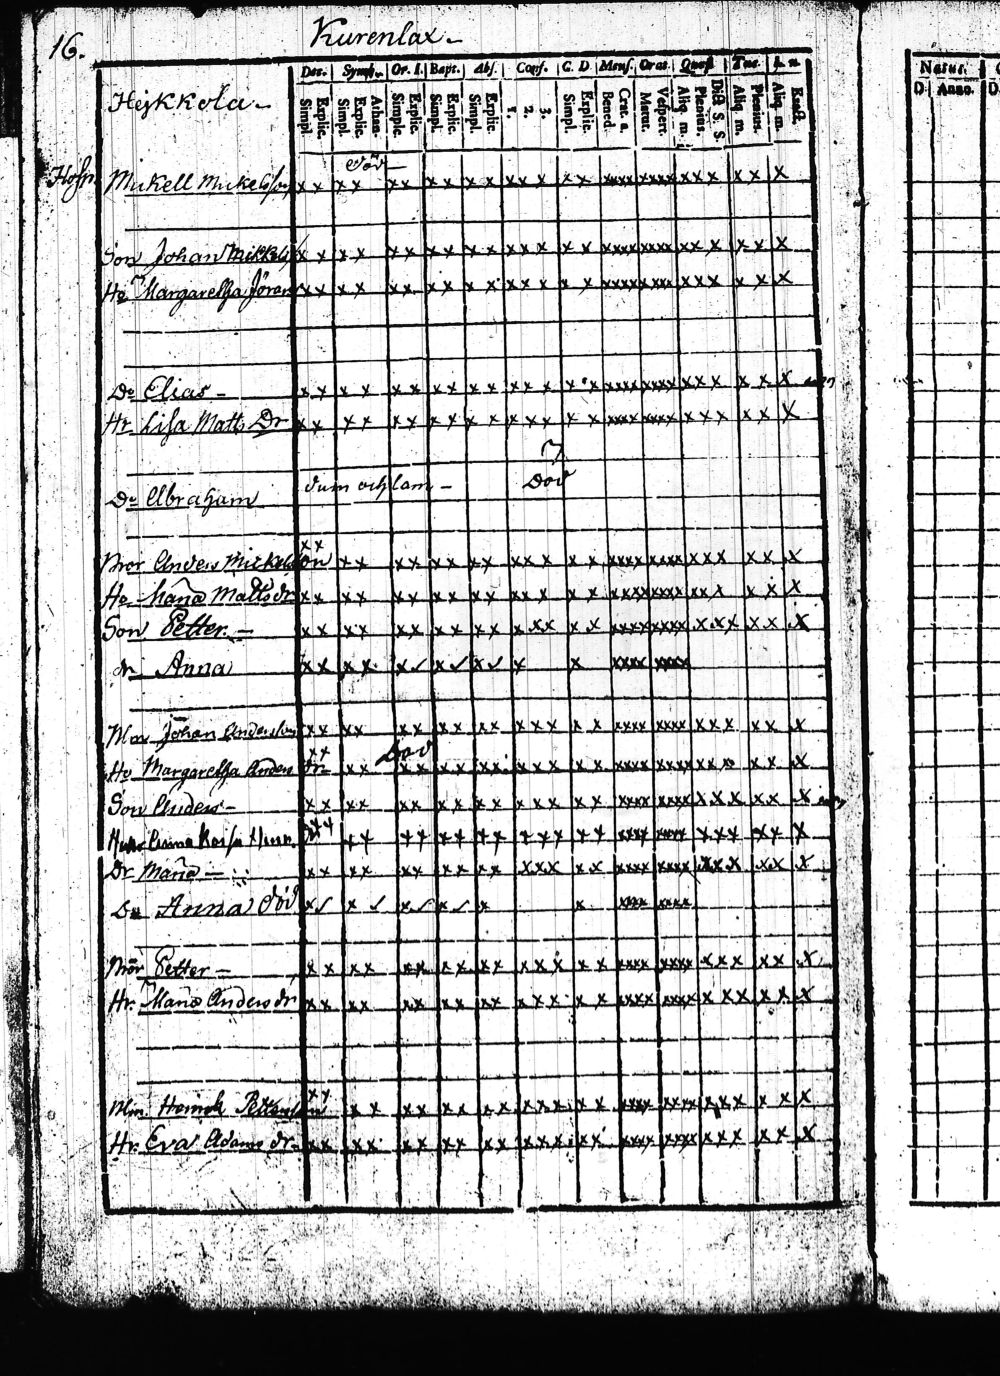 16. Kurenlax
Natus.
D Anno.
Dec. Symb. Or. D. Bapt. Abs. Conf. C. D. Mens. Orat. Quæst. Tuc. L. n.
Simpl. Explic. Simpl. Explic. Athan. Simple. Explic. Simpl. Explic. Simpl. Explic. 1. 2. 3. Simpl. Explic. Bened. Grat. a. Matut. Vespert. Aliq. m. Plenius. Dict. S. S. Aliq. m. Plenius. Aliq. m. Exact.
Hejkkola
död
Mickell Mickelsson x x x x x x x x x x x x x x x xxxx xxxx x x x x x x
Son Johan Mikkelss x x x x x x x x x x x x x x x xxxx xxxx x x x x x x
Hu Margaretha Jöran x x x x x x x x x x x x x x x xxxx xxxx x x x x x x
Do Elias x x x x x x x x x x x x x x x xxxx xxxx x x x x x x
Hr Lisa Matts Dr x x x x x x x x x x x x x x x xxxx xxxx x x x x x x
Do Abraham dum och lam Död
Bror Anders Mickelsson x x x x x x x x x x x x x x x xxxx xxxx x x x x x x
Hu Maria Matts dr x x x x x x x x x x x x x x x xxxx xxxx x x x x x x
Son Petter x x x x x x x x x x x x x x x xxxx xxxx x x x x x x
dr Anna x x x x x ✓ x ✓ x ✓ x x xxxx xxxx
Johan Andersson x x x x x x x x x x x x x x x xxxx xxxx x x x x x x
Död
Hu Margaretha Anders dr x x x x x x x x x x x x x x x xxxx xxxx x x x x x x
Son Anders x x x x x x x x x x x x x x x xxxx xxxx x x x x x x
x x x x x x x x x x x x x x x xxxx xxxx x x x x x x
Dr Maria x x x x x x x x x x x x x x x xxxx xxxx x x x x x x
Do Anna död x ✓ x ✓ x ✓ x ✓ x x xxxx xxxx
Bror Petter x x x x x x x x x x x x x x x xxxx xxxx x x x x x x
Hr. Maria Anders dr x x x x x x x x x x x x x x x xxxx xxxx x x x x x x
Henrik Pettersson x x x x x x x x x x x x x x x xxxx xxxx x x x x x x
Hr. Eva Adams dr x x x x x x x x x x x x x x x xxxx xxxx x x x x x x